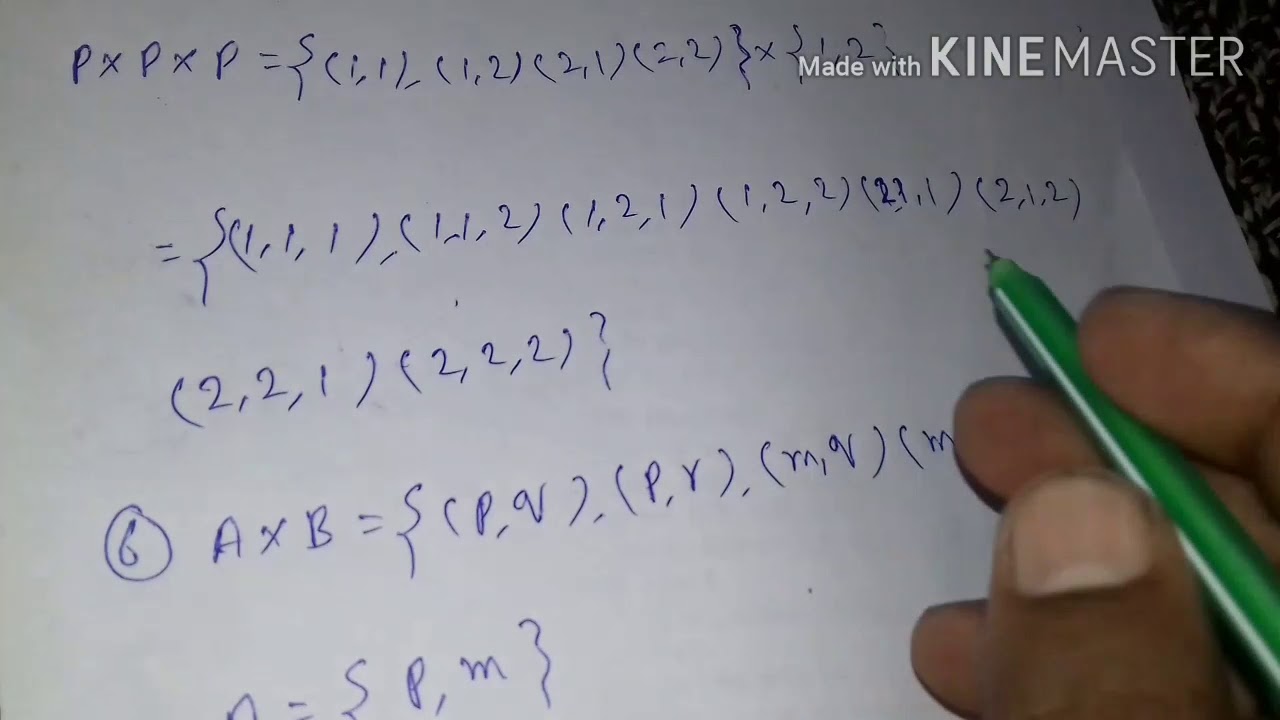 P × P × P = {(1,1), (1,2) (2,1) (2,2)} × {1,2}
Made with KINEMASTER
= {(1,1,1), (1,1,2) (1,2,1) (1,2,2) (2,1,1) (2,1,2)
(2,2,1) (2,2,2)}
⑥ A × B = {(p,q), (p,r), (m,q) (m
= {p, m}